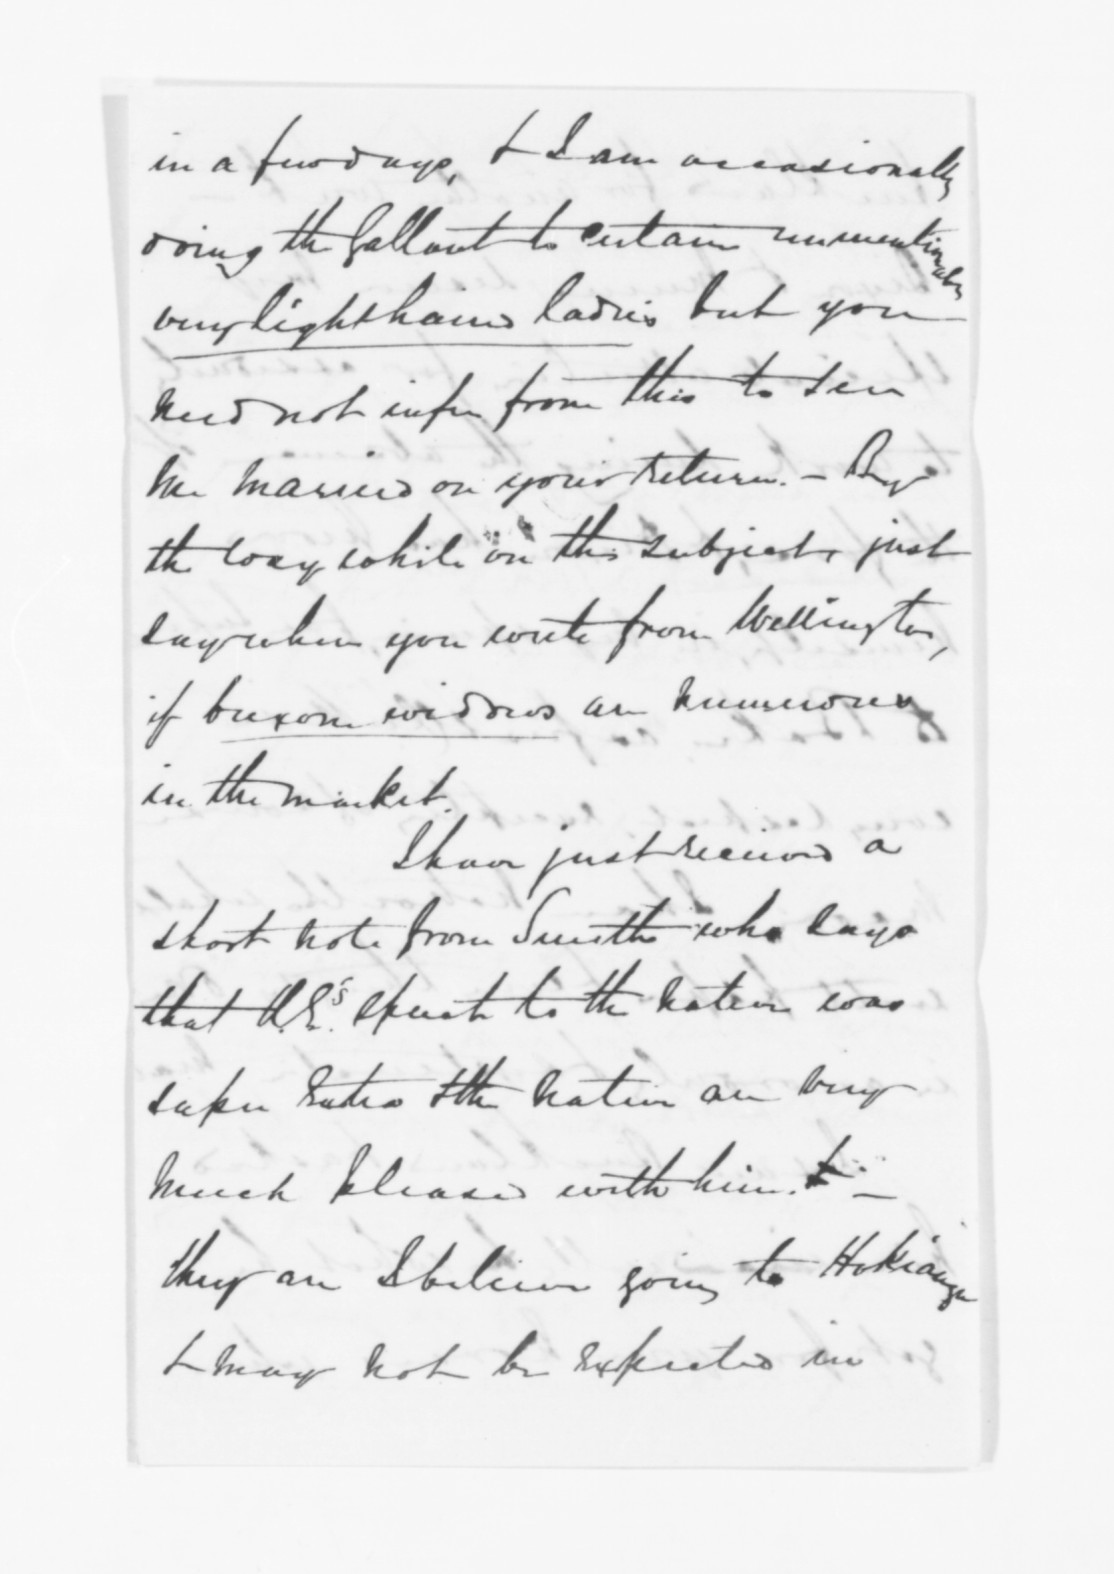 in a few days, & I am occasionally
doing the Gallant to certain unmentionable
very light haired ladies but you
need not infer from this to see
me married on your return. – By
the way while on this subject, just
say when you write from Wellington,
if buxom widows are numerous
in the market.
I have just received a
short note from Smith who says
that H.E.'s speech to the natives was
super extra & the natives are very
much pleased with him. & –
they are I believe going to Hokianga
& may not be expected in